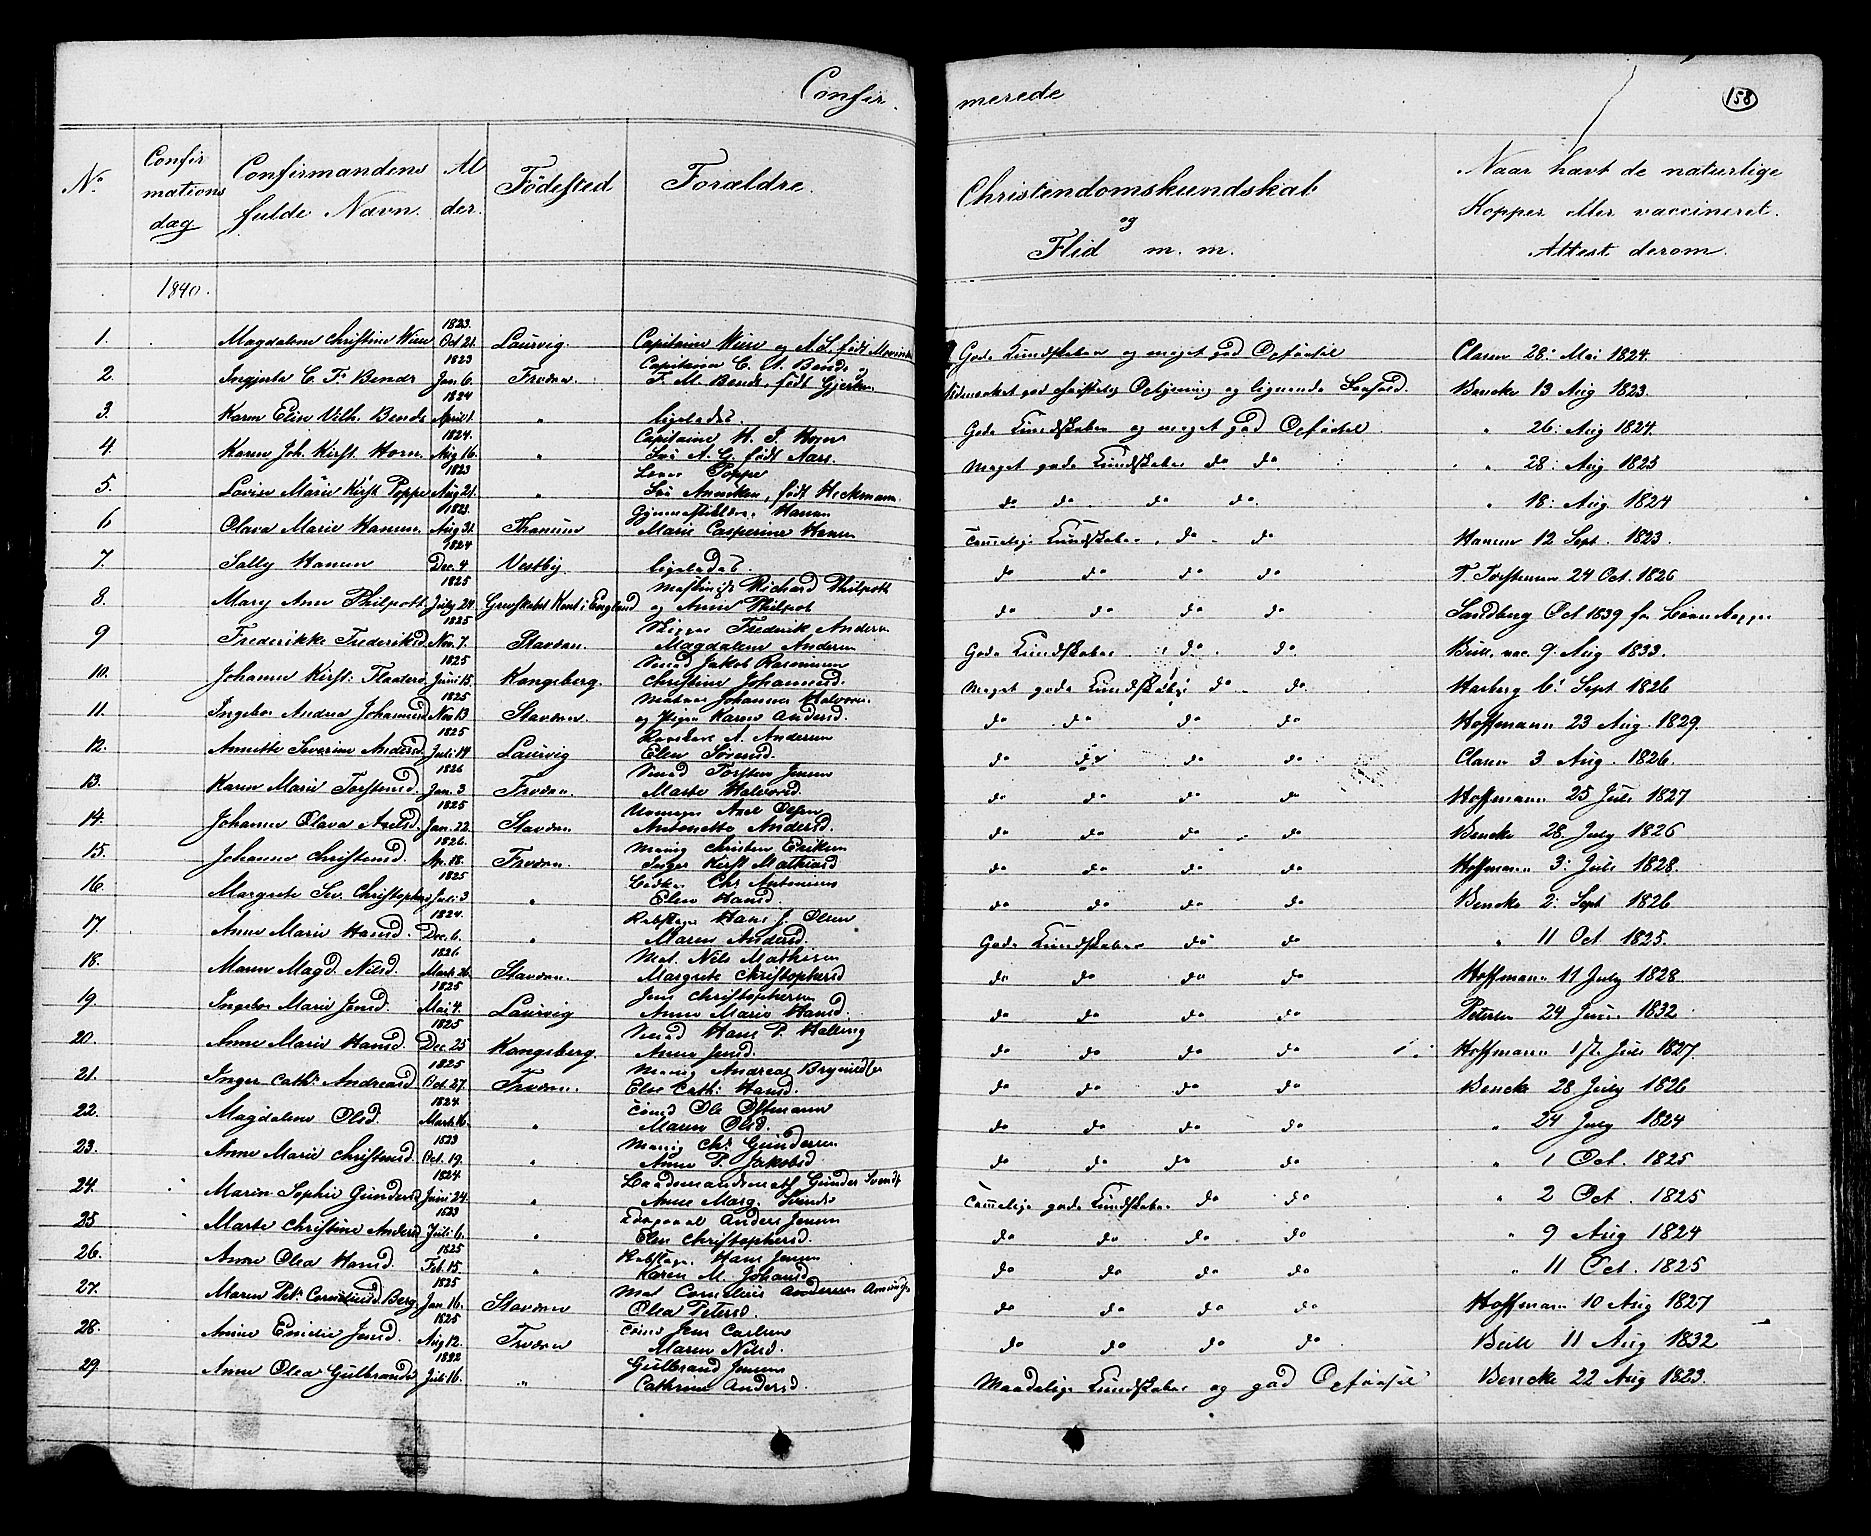 Confir
merede
158
No
Confirmations dag
Confirmandens fulde Navn.
Alder.
Födested
Forældre.
Christendomskundskab og Flid m. m.
Naar havt de naturlige Kopper eller vaccineret. Attest derom.
1840.
1. Magdalene Christine Wiese 1823. Oct 21. Laurvig. Capitaine Wiese og födt Gode Kundskaber og meget god Opförsel Clasen 28. Mai 1824.
2. C. F. Bende 1823 Jan. 6. Fredvn. Capitaine C. A. Bende og F. M. Bende, födt god christelig Oplysning og lignende Bencke 13 Aug 1823.
3. Karen Elise Vilh. Bende 1824 April 1. " ligeledes. Gode Kundskaber og meget god Opförsel " 26. Aug 1824.
4. Karen Joh. Kirst. Horn 1824. Aug 16. " Capitaine H. J. Horn A. G. födt Aars. Meget gode Kundskaber do do " 28. Aug 1825
5. Lovise Marie Kirst. Poppe 1823 Aug 21. " Poppe Anneken, födt Heckmann do do do do " 18. Aug 1824
6 Olava Marie Hansen 1823. Aug 31. Thanum Hansen Marie Casperine Hansen Temmelige Kundskaber, do do Hansen 12 Sept. 1823.
7. Sally Hansen 1824 Dec. 4 Vestby. ligeledes. do do do do T. Torstensen 24 Oct. 1826
8. Mary Ann Philpott 1825 July 24. Grevskabet Kent i England Richard Philpott og Anne Philpot do do do do Sandberg Oct 1839
9 Frederikke Frederiksd 1825 Nov. 7. Stavdn. Frederik Andersn Magdalene Andersn Gode Kundskaber do do Bull. vac. 9. Aug 1833.
10. Johanne Kirst. 1825 Juni 15. Kongsberg. Jakob Rasmussen Christine Johannesd. Meget gode Kundskaber do do Harberg 6. Sept 1826
11. Ingebor Andrea Johannesd 1825 Nov 13 Stavdn. Johannes Halvorsn og Pigen Karen Andersd. do do do do Hoffmann 23 Aug. 1829.
12. Annette Severine Andersd 1825 Juli 14 Laurvig A. Andersen Elen Sörensd. do do do do Clasen 3 Aug. 1826.
13. Karen Marie Torstensd. 1826 Jan. 3 Fredvn. Torsten Jensen Marte Halvorsd. do do do do Hoffmann 25 Juli 1827
14. Johanne Olava Axelsd. 1825 Jan. 22. Stavdn Axel Olsen Antonette Andersd. do do do do Bencke 28. July 1826
15. Johanne Christensd. 1826. Ap. 18. Fredvn. Christen Eriksen Inger Kirst Mathiasd do do do do Hoffmann 3. Juli 1828.
16. Margrete Sev. Christophersd 1825 Juli 3 " Chr Antonsen Elen Hansd do do do do Bencke 2. Sept 1826
17. Anne Marie Hansd. 1824. Dec. 6. " Hans J. Olsen Maren Andersd. Gode Kundskaber do do " 11 Oct 1825.
18. Maren Magd. Nilsd. 1826 Marts 26 Stavdn. Mat. Nils Mathisen Margrete Christophersd do do do do Hoffmann 11 July 1828
19. Ingebor Marie Jensd. 1825 Mai 4. Laurvig Jens Christophersen Anne Marie Hansd. do do do do Petersen 24 Juni 1832
20. Anne Marie Hansd. 1825 Dec 25 Kongsberg. Hans P. Halling Anne Jensd. do do do do Hoffmann 17. Juli 1827.
21. Inger Cath. Andreasd 1825 Oct. 27. Fredvn. Andreas Else Cath. Hansd. do do do do Bencke 28 July 1826
22. Magdalene Olsd. 1824 Marts 16 " Ole Ostmann Maren Olsd. do do do do " 24 July 1824
23. Anne Marie Christensd. 1823 Oct. 19. " Chr Gundersen Anne P. Jakobsd do do do do " 1 Oct. 1825
24. Maren Sophie Gundersd 1824 Juni 24. " Gunder Svends Anne Marg. Temmelige gode Kundskaber do do " 2 Oct. 1825
25 Marte Christine Andersd 1823 Juli 6. " Anders Jensen Elen Christophersd. do do do do " 9 Aug 1824
26. Anne Olea Hansd. 1825 Feb. 15. " Hans Jensen Karen M. Johansd do do do do " 11 Oct. 1825
27. Maren Pet. Corneliusd. Berg 1825 Jan 16. Stavdn Mat Cornelius Andersen Olea Petersd. do do do do Hoffmann 10 Aug 1827
28. Anne Emilie Jensd. 1825 Aug 12. Fredvn Jens Carlsen Maren Nilsd. do do do do Bull 11 Aug 1832
29 Anne Olea Gulbrands 1822 Juli 16. " Gulbrand Jensen Cathrine Andersd. Maadelige Kundskaber og god Opförsel Bencke 22 Aug 1823.